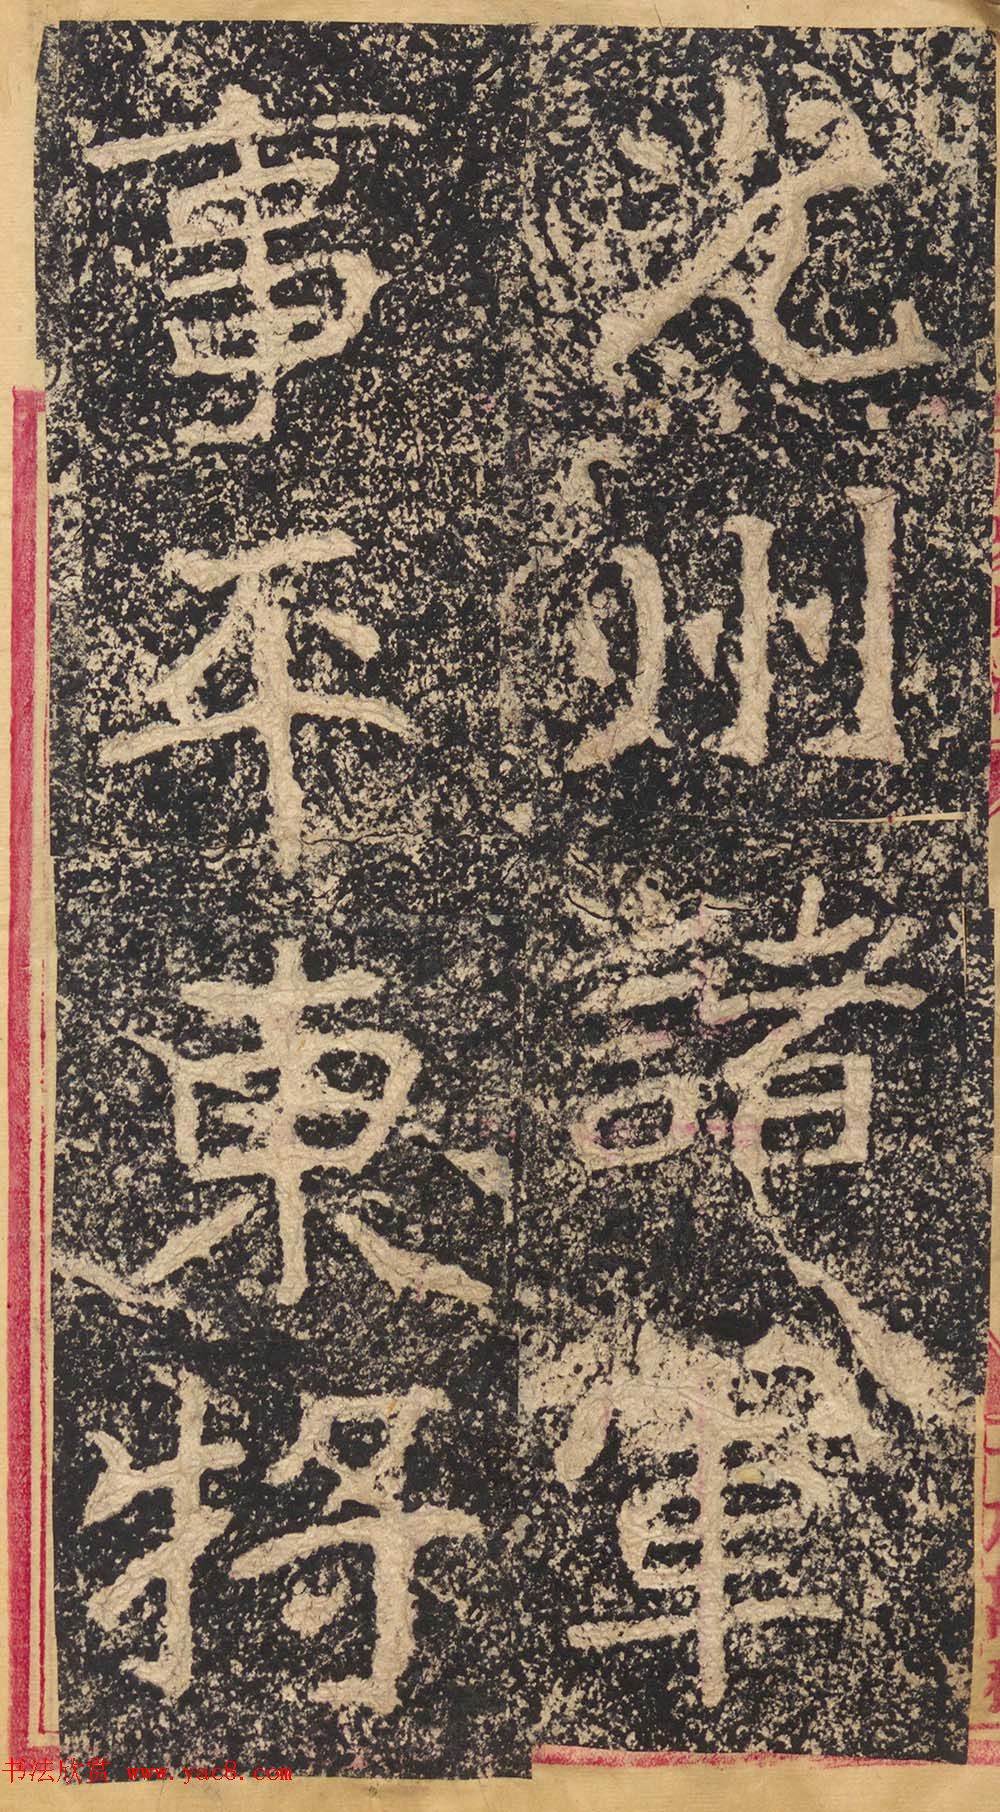 光州諸軍
事平東將
书法欣赏 www.yac8.com